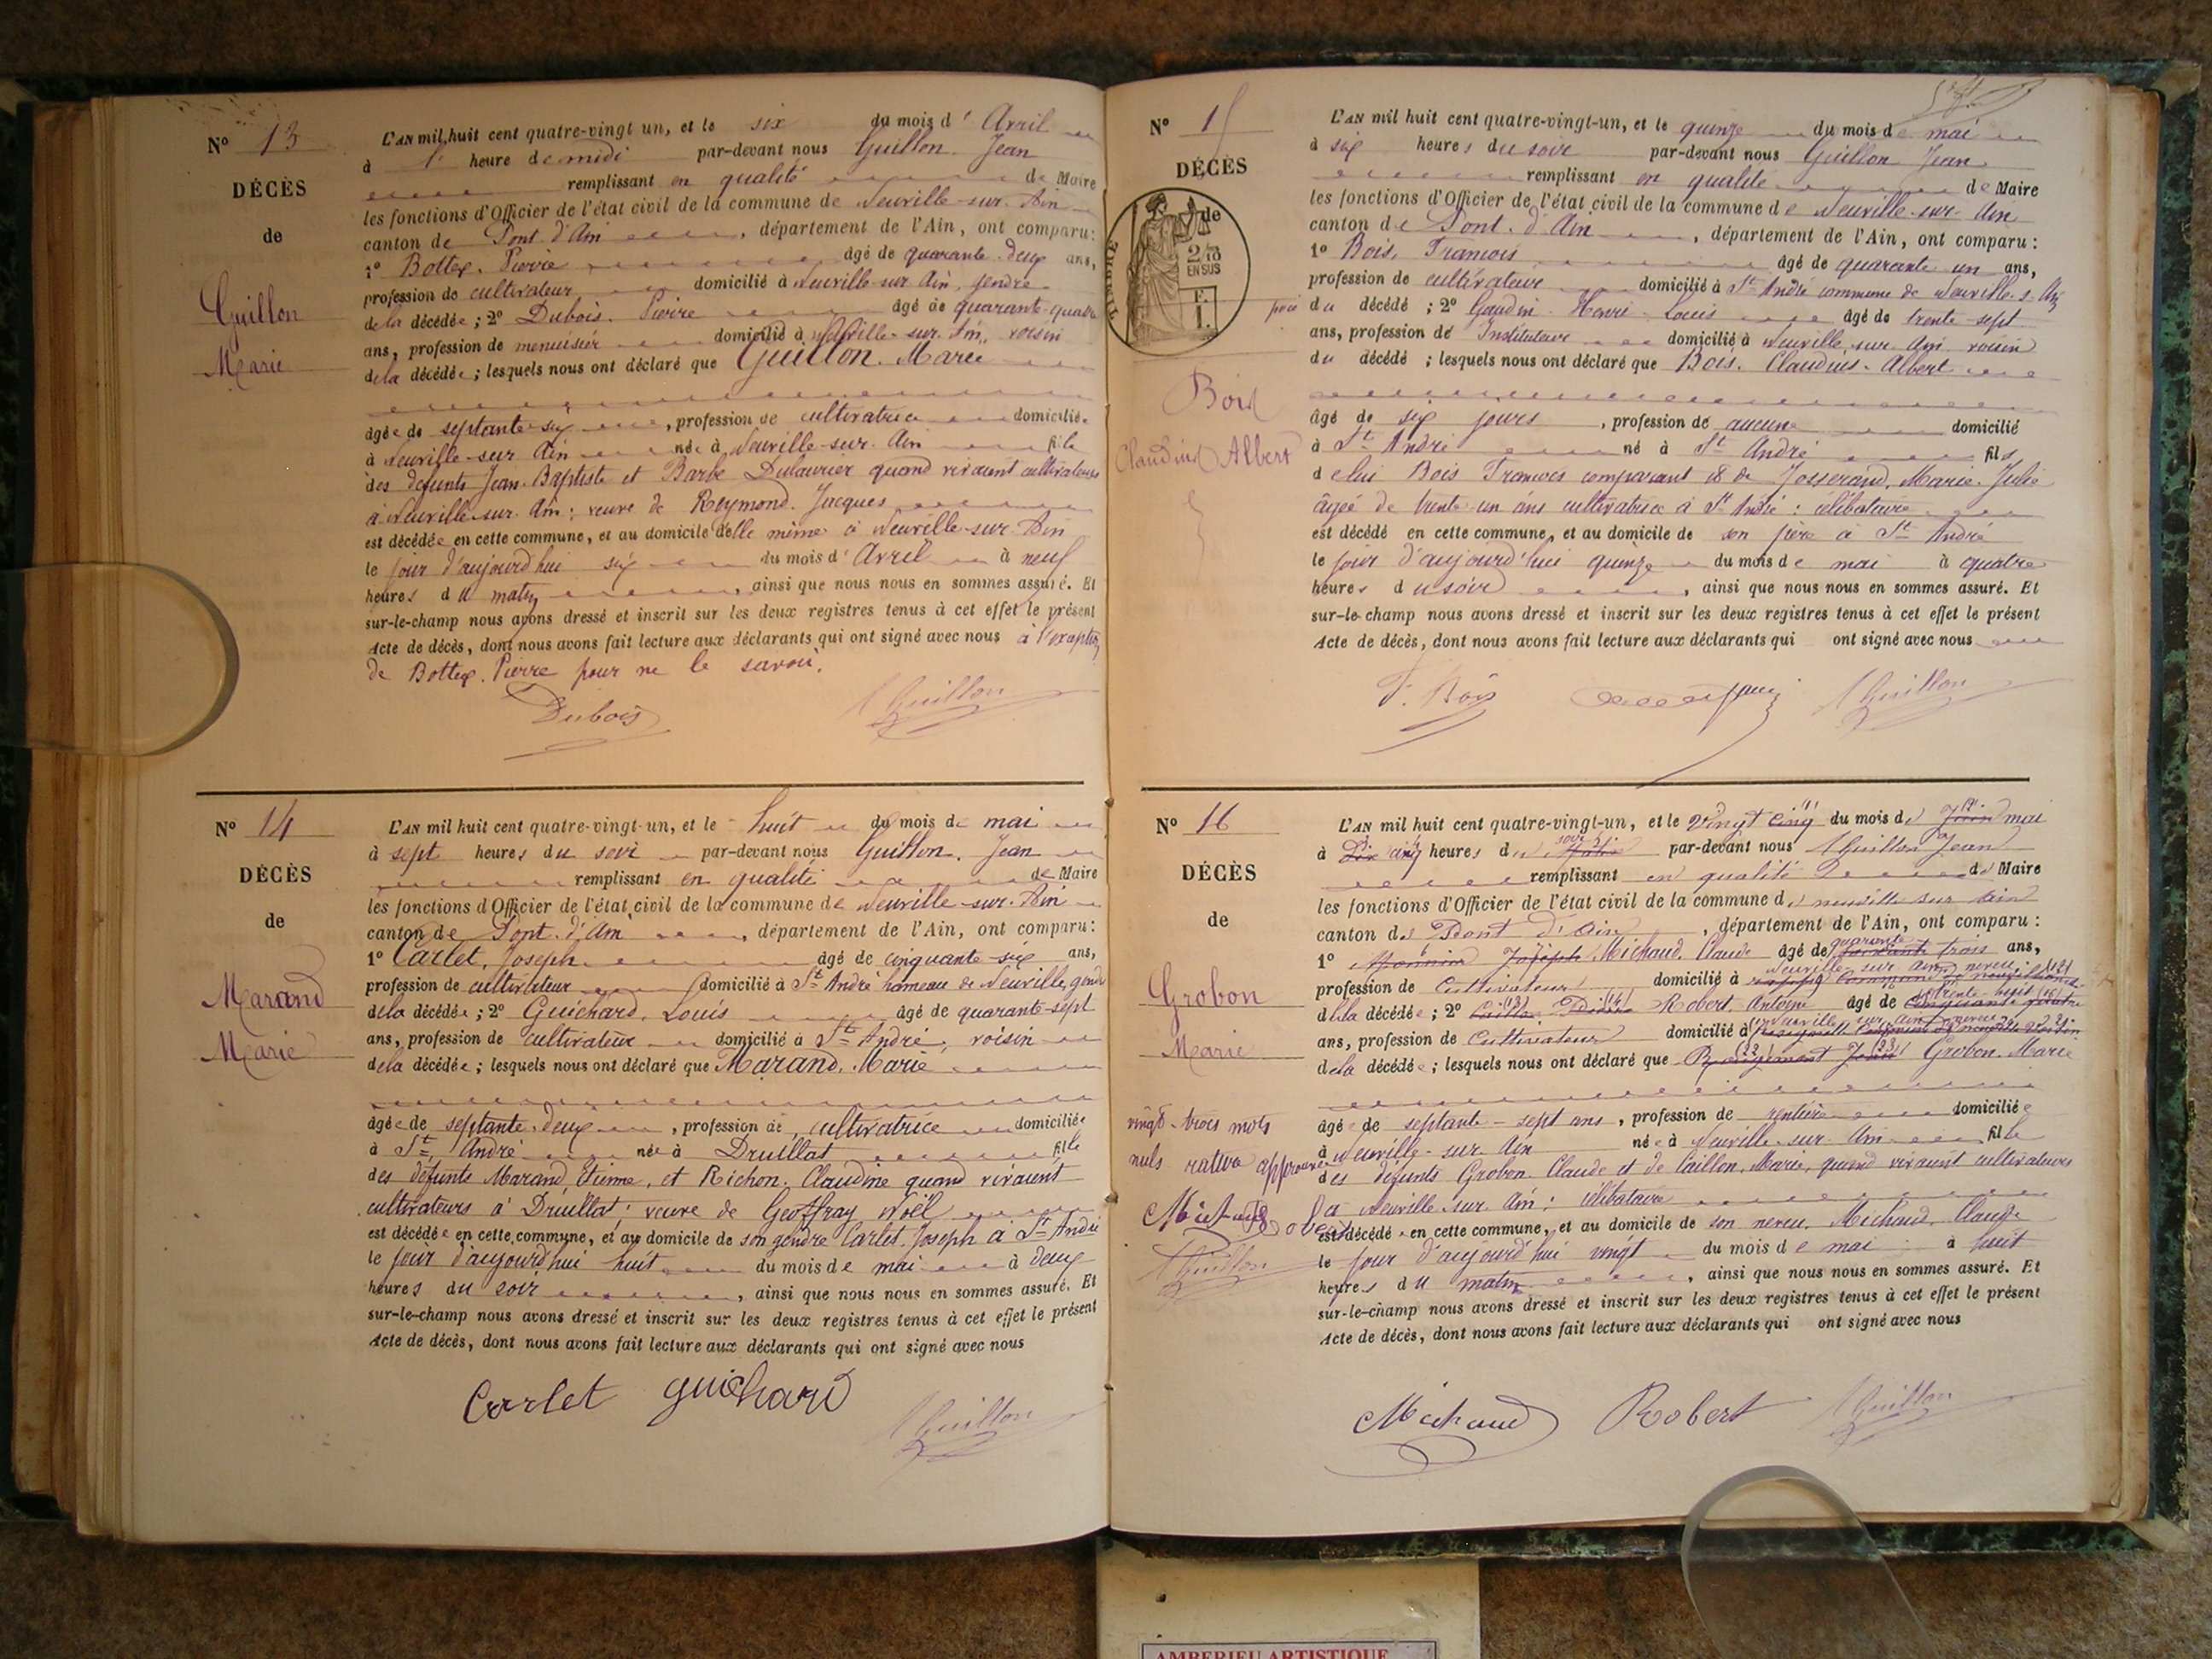 N° 13
DÉCÈS
de
Guillon
Marie
L'AN mil huit cent quatre-vingt un, et le six du mois d' Avril
à 1 heure de midi par-devant nous Guillon Jean
remplissant en qualité de Maire
les fonctions d'Officier de l'état civil de la commune de Neuville-sur-Ain
canton de Pont d'Ain, département de l'Ain, ont comparu:
1° Bottex. Pierre âgé de quarante-deux ans,
profession de cultivateur domicilié à Neuville sur Ain, gendre
de la décédée; 2° Dubois. Pierre âgé de quarante-quatre
ans, profession de menuisier domicilié à Neuville-sur-Ain, voisin
de la décédée; lesquels nous ont déclaré que Guillon. Marie
âgée de septante-six, profession de cultivatrice domiciliée
à Neuville-sur Ain née à Neuville-sur-Ain fille
des défunts Jean-Baptiste et Barbe Dulaurier quand vivaient cultivateurs
à Neuville-sur-Ain: veuve de Reymond. Jacques
est décédée en cette commune, et au domicile d'elle même à Neuville-sur-Ain
le jour d'aujourd'hui six du mois d' Avril à neuf
heures du matin, ainsi que nous nous en sommes assuré. Et
sur-le-champ nous avons dressé et inscrit sur les deux registres tenus à cet effet le présent
Acte de décès, dont nous avons fait lecture aux déclarants qui ont signé avec nous à l'exception
de Bottex. Pierre pour ne le savoir.
Dubois JGuillon
N° 14
DÉCÈS
de
Marand
Marie
L'AN mil huit cent quatre-vingt-un, et le huit du mois de mai
à sept heures du soir par-devant nous Guillon. Jean
remplissant en qualité de Maire
les fonctions d'Officier de l'état civil de la commune de Neuville-sur-Ain
canton de Pont-d'Ain, département de l'Ain, ont comparu:
1° Carlet, Joseph âgé de cinquante-six ans,
profession de cultivateur domicilié à St André hameau de Neuville, gendre
de la décédée; 2° Guichard, Louis âgé de quarante-sept
ans, profession de cultivateur domicilié à St André, voisin
de la décédée; lesquels nous ont déclaré que Marand, Marie
âgée de septante-deux, profession de cultivatrice domiciliée
à St André née à Druillat fille
des défunts Marand, Etienne, et Richon. Claudine quand vivaient
cultivateurs à Druillat: veuve de Geoffray Noël
est décédée en cette commune, et au domicile de son gendre Carlet. Joseph à St André
le jour d'aujourd'hui huit du mois de mai à deux
heures du soir, ainsi que nous nous en sommes assuré. Et
sur-le-champ nous avons dressé et inscrit sur les deux registres tenus à cet effet le présent
Acte de décès, dont nous avons fait lecture aux déclarants qui ont signé avec nous
Carlet guichard JGuillon
N° 15
DÉCÈS
de
TIMBRE
2/10
EN SUS
F.
1.
Bois
Claudius Albert
L'AN mil huit cent quatre-vingt-un, et le quinze du mois de mai
à six heures du soir par-devant nous Guillon Jean
remplissant en qualité de Maire
les fonctions d'Officier de l'état civil de la commune de Neuville-sur-Ain
canton de Pont-d'Ain, département de l'Ain, ont comparu:
1° Bois, Francois âgé de quarante un ans,
profession de cultivateur domicilié à St André commune de Neuville-s-Ain
père du décédé; 2° Gaudin-Henri-Louis âgé de trente-sept
ans, profession de Instituteur domicilié à Neuville-sur-Ain voisin
du décédé; lesquels nous ont déclaré que Bois. Claudius-Albert
âgé de six jours, profession de aucune domicilié
à St André né à St André fils
de lui Bois Francois comparant et de Josserand, Marie-Julie
âgée de trente-un ans cultivatrice à St André: célibataire
est décédé en cette commune, et au domicile de son père à St André
le jour d'aujourd'hui quinze du mois de mai à quatre
heures du soir, ainsi que nous nous en sommes assuré. Et
sur-le-champ nous avons dressé et inscrit sur les deux registres tenus à cet effet le présent
Acte de décès, dont nous avons fait lecture aux déclarants qui ont signé avec nous
F. Bois JGuillon
N° 16
DÉCÈS
de
Grobon
Marie
vingt-trois mots
nuls rature approuvée
Michaud Robert
JGuillon
L'AN mil huit cent quatre-vingt-un, et le vingt cinq du mois de Juin mai
à Dix cinq heures du soir matin par-devant nous Guillon Jean
remplissant en qualité de Maire
les fonctions d'Officier de l'état civil de la commune de neuville sur ain
canton de Pont d'Ain, département de l'Ain, ont comparu:
1° Joseph Michaud. Claude âgé de quarante trois ans,
profession de Cultivateur domicilié à Neuville sur ain neveu
de la décédée; 2° Robert. Antoine âgé de trente-huit
ans, profession de Cultivateur domicilié à Neuville sur ain neveu
de la décédée; lesquels nous ont déclaré que Grobon. Marie
âgée de septante-sept ans, profession de rentière domiciliée
à Neuville-sur-Ain née à Neuville-sur-Ain fille
des défunts Grobon. Claude et de Caillon. Marie, quand vivaient cultivateurs
à Neuville sur Ain: célibataire
est décédée en cette commune, et au domicile de son neveu, Michaud. Claude
le jour d'aujourd'hui vingt du mois de mai à huit
heures du matin, ainsi que nous nous en sommes assuré. Et
sur-le-champ nous avons dressé et inscrit sur les deux registres tenus à cet effet le présent
Acte de décès, dont nous avons fait lecture aux déclarants qui ont signé avec nous
Michaud Robert JGuillon
AMBERIEU ARTISTIQUE